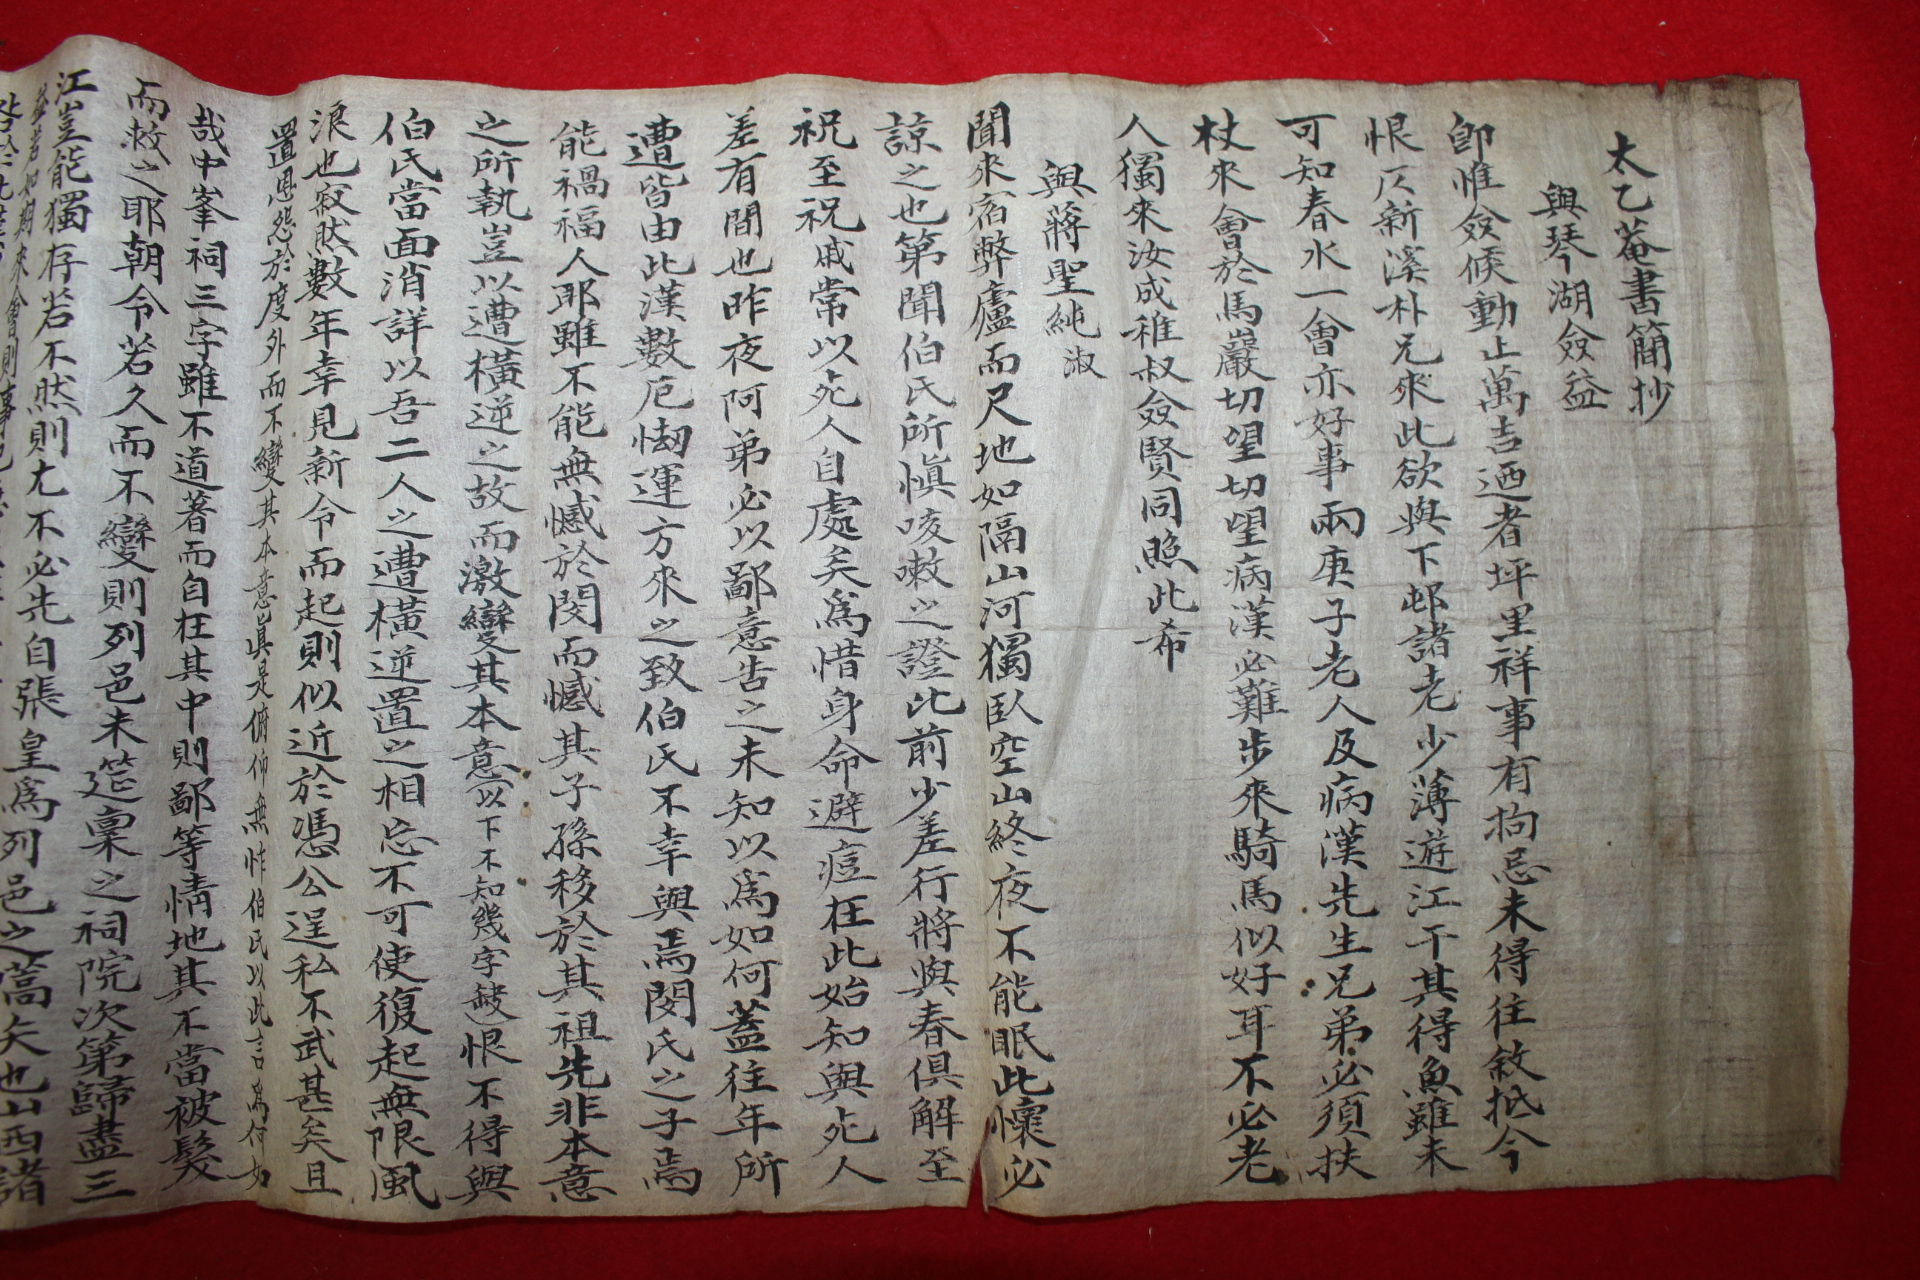 太乙菴書簡抄
與琴湖僉益
卽惟僉候動止萬吉迺者坪里祥事有拘忌未得往敘抵今
恨仄新溪朴兄來此欲與下邨諸老少薄遊江干其得魚雖未
可知春水一會亦好事兩庚子老人及病漢先生兄弟必須扶
杖來會於馬巖切望切望病漢必難步來騎馬似好耳不必老
人獨來汝成稚叔僉賢同照此希
與蔣聖純淑
聞來宿弊廬而尺地如隔山河獨臥空山終夜不能眠此懷必
諒之也第聞伯氏所愼咳嗽之證比前少差行將與春俱解至
祝至祝戚常以死人自處矣爲惜身命避痘在此始知與死人
差有間也昨夜阿弟必以鄙意告之未知以爲如何蓋往年所
遭皆由此漢數厄㥘運方來之致伯氏不幸與焉閔氏之子焉
能禍福人耶雖不能無憾於閔而憾其子孫移於其祖先非本意
之所執豈以遭橫逆之故而激變其本意(以下不知幾字缺)恨不得與
伯氏當面消詳以吾二人之遭橫逆置之相忘不可使復起無限風
浪也寂然數年幸見新令而起則似近於憑公逞私不武甚矣且
置恩怨於度外而不變其本意眞是俯仰無怍伯氏以此言爲何如
哉中峯祠三字雖不道著而自在其中則鄙等情地其不當被髮
而救之耶朝令若久而不變則列邑未筵稟之祠院次第歸盡三
江豈能獨存若不然則尤不必先自張皇爲列邑之嚆矢也山西諸